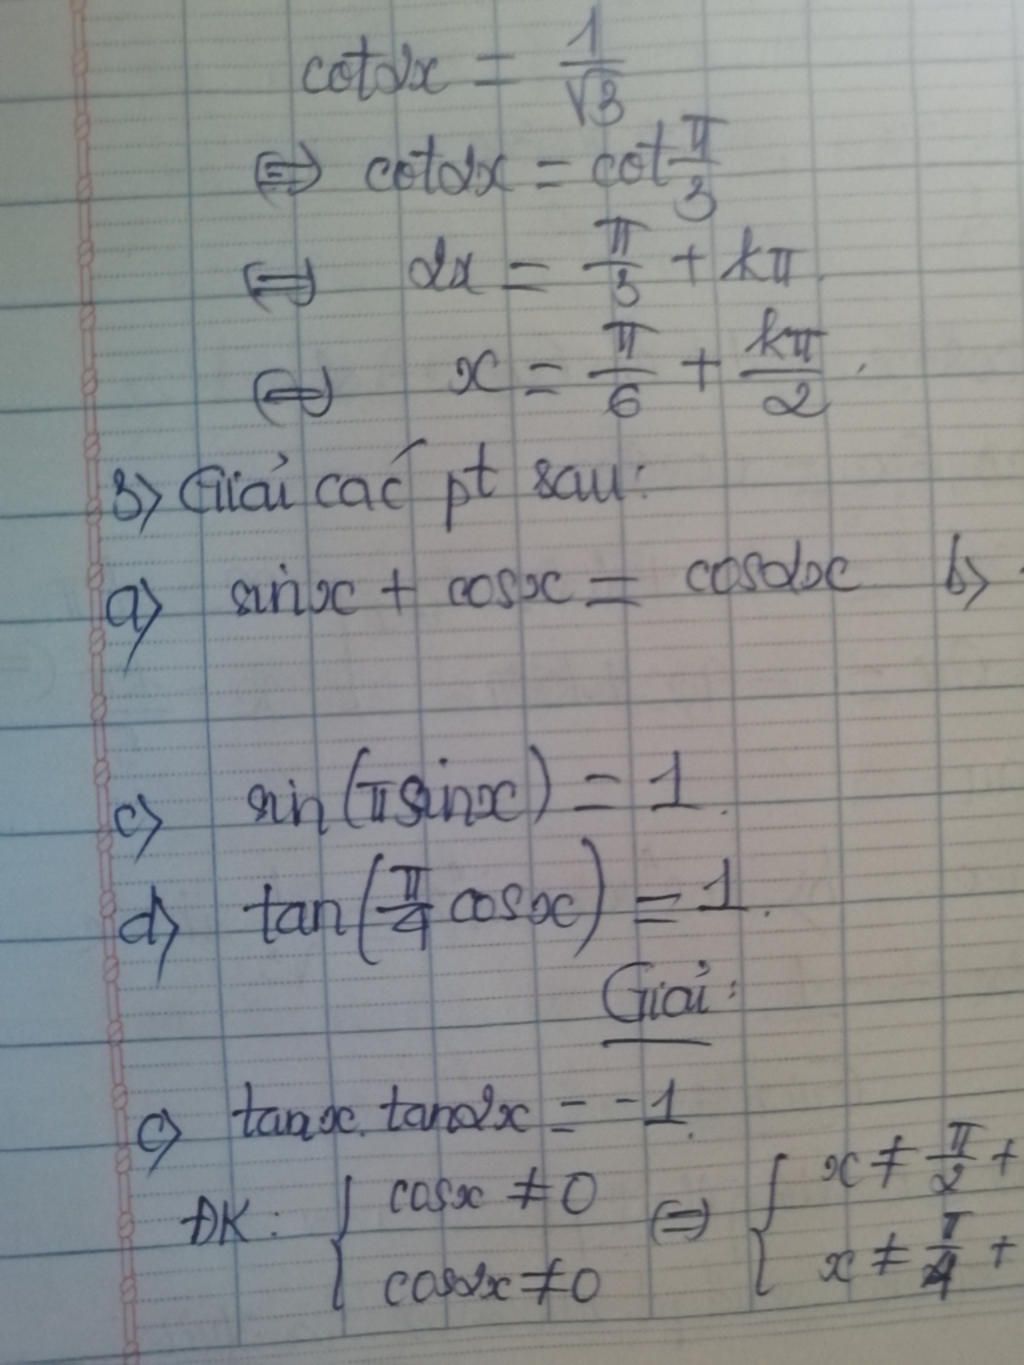 cot2x = 1/√3
⇔ cot2x = cot π/3
⇔ 2x = π/3 + kπ.
⇔ x = π/6 + kπ/2.
3) Giải các pt sau:
a) sinx + cosx = cos2x b)
c) sin(πsinx) = 1.
d) tan(π/4 cosx) = 1.
Giải:
c) tanx.tan2x = -1.
ĐK: { cosx ≠ 0 ⇔ { x ≠ π/2 +
cos2x ≠ 0 x ≠ π/4 +